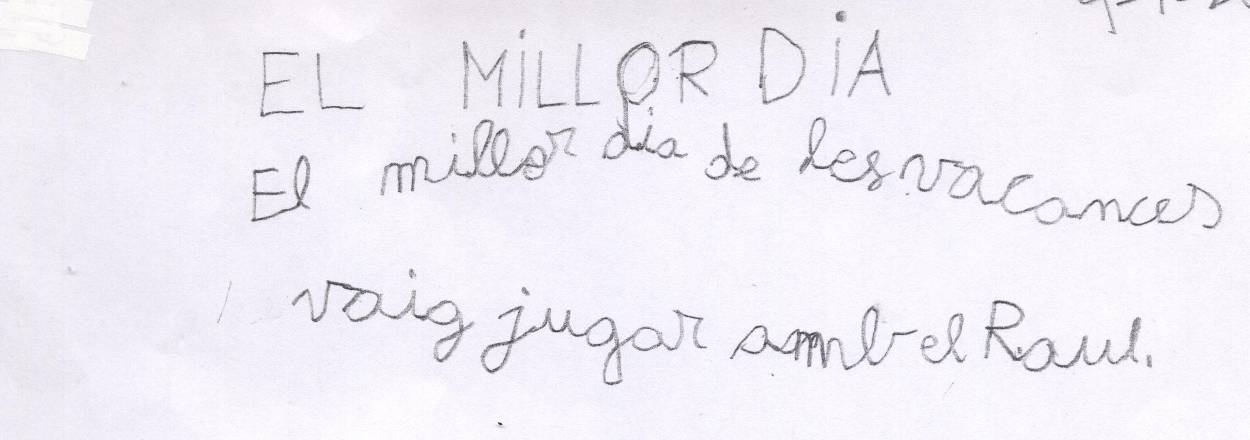 EL MILLOR DIA
El millor dia de les vacances
vaig jugar amb el Raul.